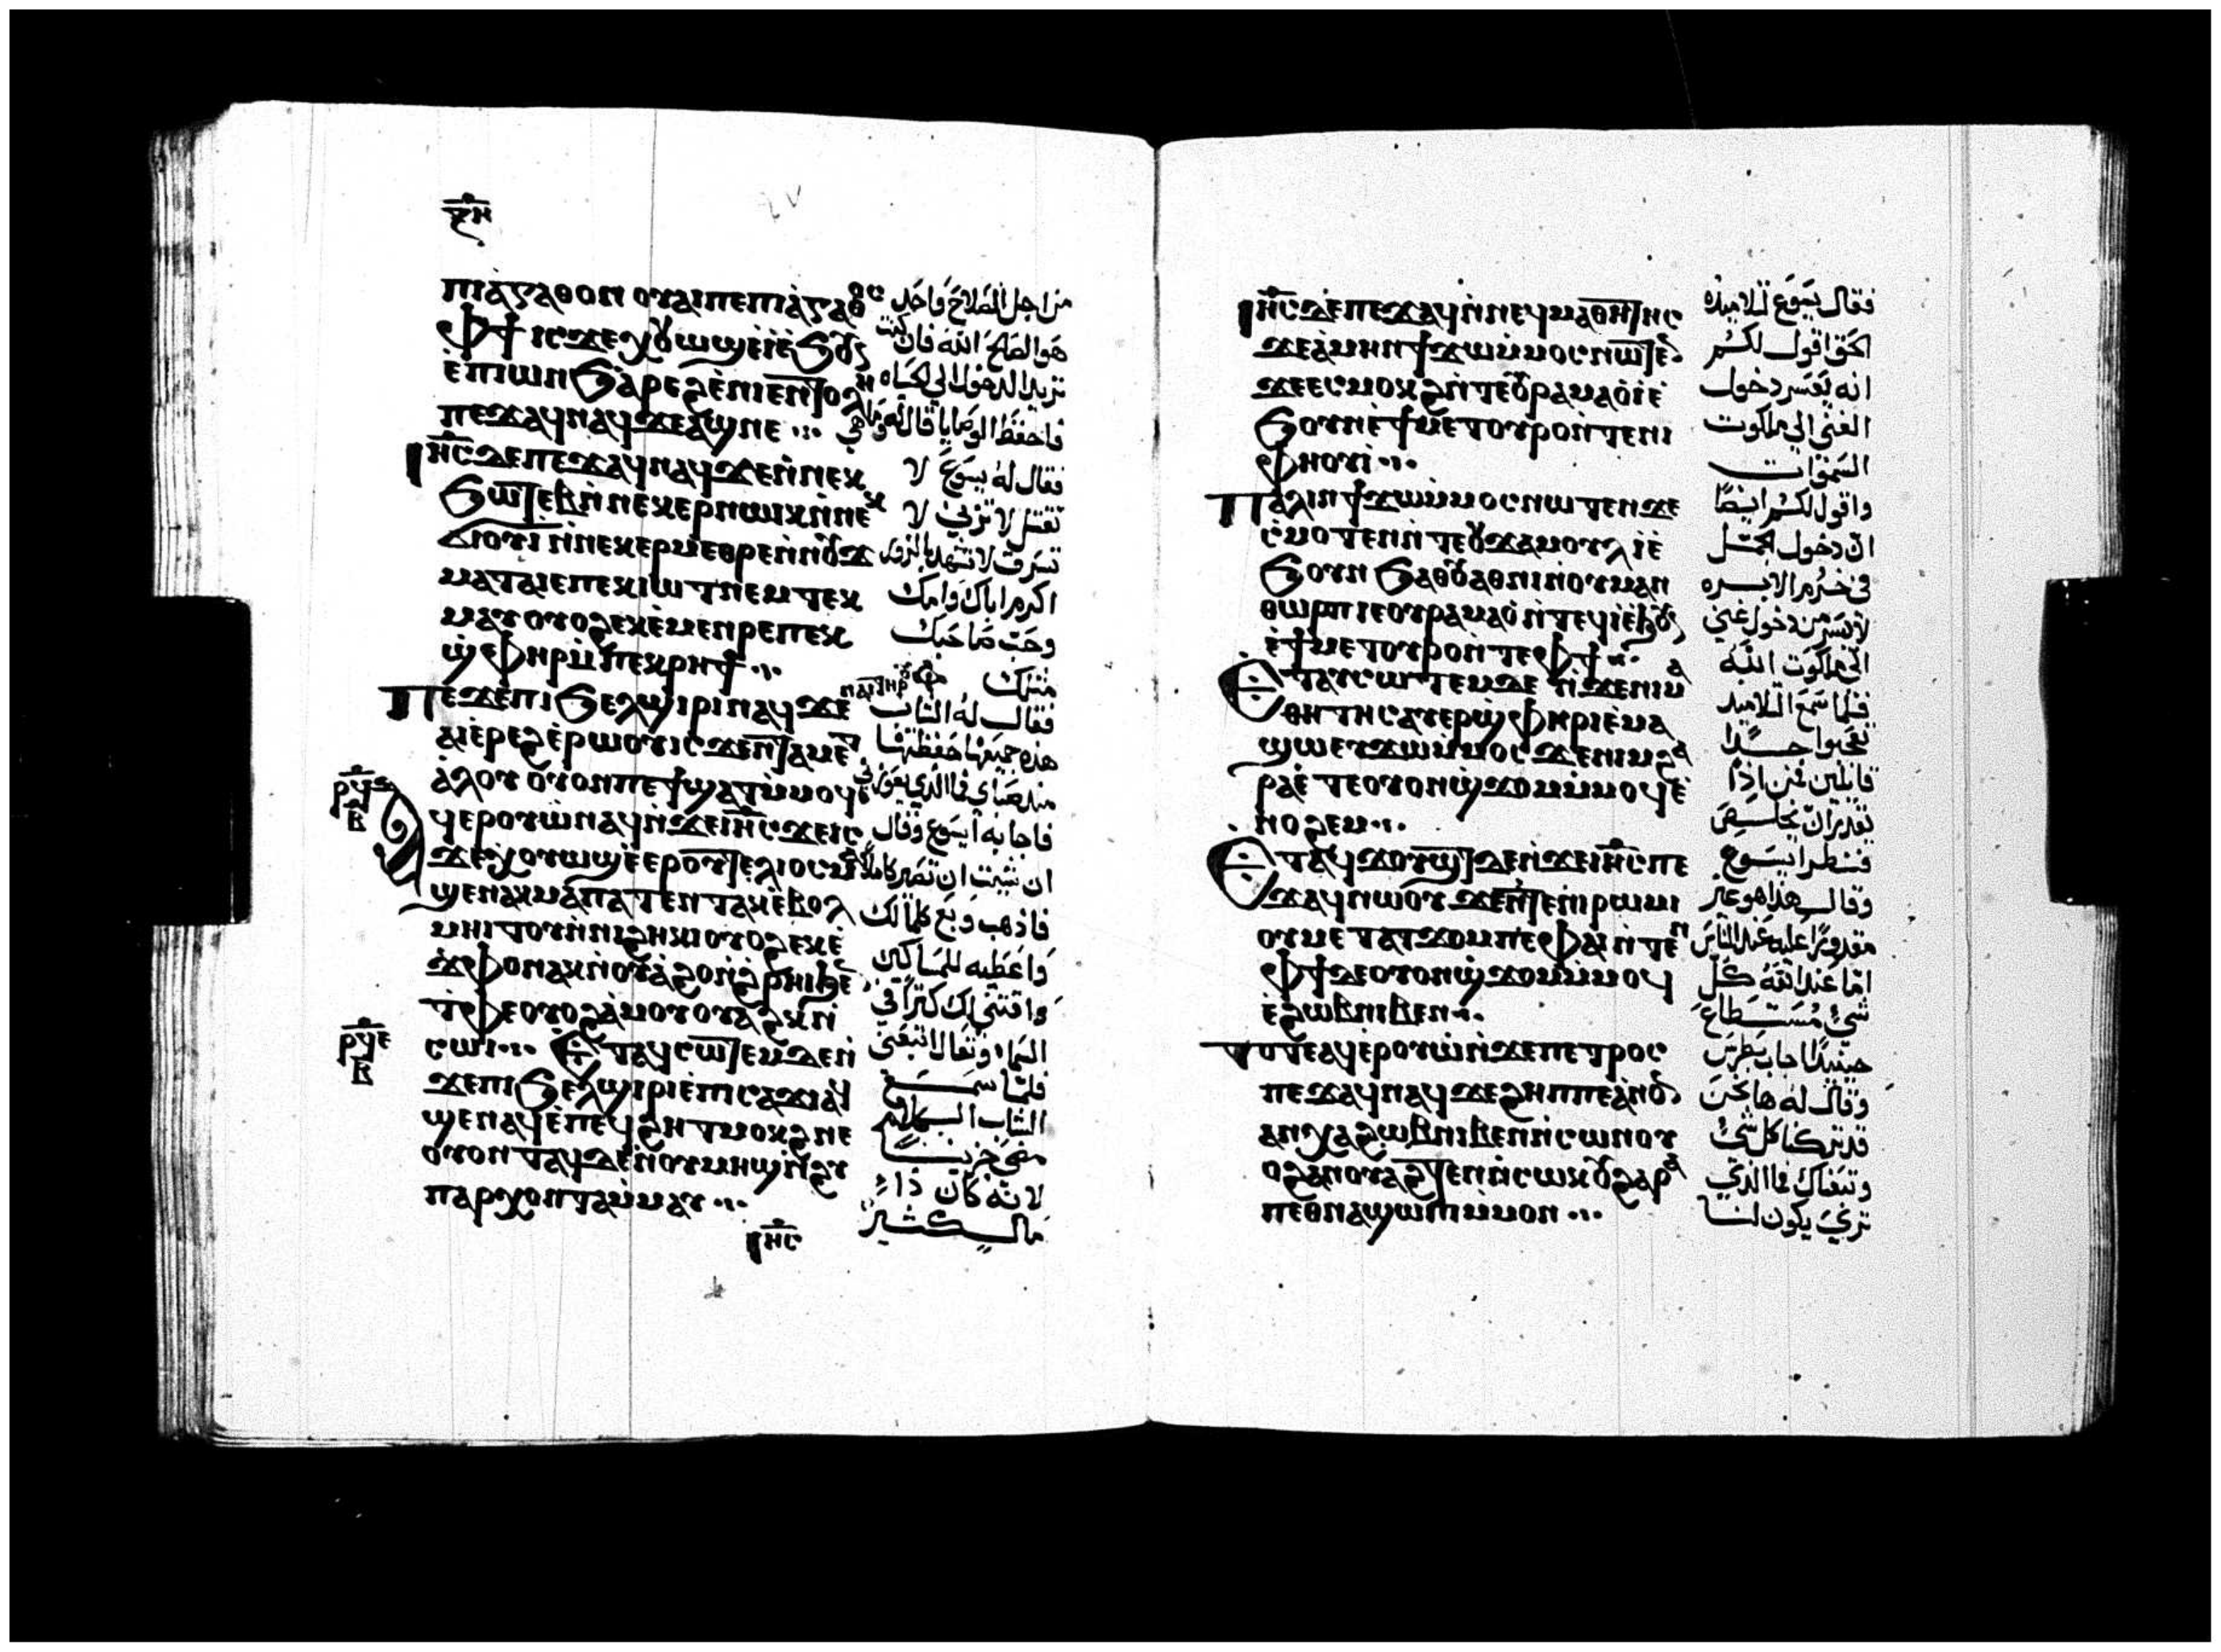 ⲝⲏ
ⲡⲓⲁ̀ⲅⲁⲑⲟⲛ ⲟⲩⲁⲓⲡⲉⲡⲓⲁ̀ⲅⲁⲑⲟⲥ
ⲫϯ ⲓⲥϫⲉⲭⲟⲩⲱϣⲉ̀ⲓ̀ⲉ̀ϧⲟⲩⲛ
ⲉ̀ⲡⲓⲱⲛϧ ⲁ̀ⲣⲉϩ ⲉ̀ⲛⲓⲉⲛⲧⲟⲗⲏ
ⲡⲉϫⲁϥⲛⲁϥϫⲉⲁϣⲛⲉ
ⲓⲏ̅ⲥ̅ ⲇⲉⲡⲉϫⲁϥⲛⲁϥϫⲉⲛ̀ⲛⲉⲕ
ϧⲱⲧⲉⲃ ⲛ̀ⲛⲉⲕⲉⲣⲛⲱⲓⲕ ⲛ̀ⲛⲉⲕ
ϭⲓⲟⲩⲓ̀ ⲛ̀ⲛⲉⲕⲉⲣⲙⲉⲑⲣⲉⲛ̀ⲛⲟⲩϫ
ⲙⲁⲧⲁⲓⲉⲡⲉⲕⲓⲱⲧⲛⲉⲙⲧⲉⲕ
ⲙⲁⲩ ⲟⲩⲟϩ ⲉⲕⲉ̀ⲙⲉⲛⲣⲉⲡⲉⲕ
ϣ̀ⲫⲏⲣⲙ̀ⲡⲉⲕⲣⲏϯ
ⲡⲉϫⲉⲡⲓϧⲉⲗϣⲓⲣⲓⲛⲁϥϫⲉ ⲛⲁⲓⲧⲏⲣⲟⲩ
ⲁⲓⲉ̀ⲣⲉϩⲉ̀ⲣⲱⲟⲩⲓⲥϫⲉⲛⲧⲁⲙⲉⲧ
ⲁ̀ⲗⲟⲩ ⲟⲩⲟⲛⲡⲉϯϣⲁⲧⲙ̀ⲙⲟϥ
ⲣϥⲋ
ⲃ
ⲁϥⲉⲣⲟⲩⲱ̀ⲛⲁϥⲛ̀ϫⲉⲓⲏ̅ⲥ̅ϫⲉⲓⲥ
ϫⲉⲭⲟⲩⲱϣⲉ̀ⲉⲣⲟⲩⲧⲉⲗⲓⲟⲥⲙⲁ
ϣⲉⲛⲁⲕⲙⲁⲛⲁⲧⲉⲛⲧⲁⲕⲉ̀ⲃⲟⲗ
ⲙⲏⲓⲧⲟⲩⲛ̀ⲛⲓϩⲏⲕⲓⲟⲩⲟϩⲉⲕⲉ̀
ϫⲫⲟⲛⲁⲕⲛ̀ⲟⲩⲁ̀ϩⲟⲛ̀ϩ̀ⲣⲏⲓϧⲉⲛ
ⲧ̀ⲫⲉⲟⲩⲟϩⲁ̀ⲙⲟⲩⲟⲩⲁϩⲕⲛ̀
ⲣϥⲉ
ⲃ
ⲥⲱⲓ ⲉⲧⲁϥⲥⲱⲧⲉⲙⲇⲉⲛ̀
ϫⲉⲡⲓϧⲉⲗϣⲓⲣⲓⲉ̀ⲡⲓⲥⲁϫⲓⲁϥ
ϣⲉⲛⲁϥⲉ̀ⲣⲉⲡⲉϥϩⲏⲧⲙⲟⲕϩⲛⲉ
ⲟⲩⲟⲛⲧⲁϥⲇⲉⲛ̀ⲟⲩⲙⲏϣⲛ̀ϩⲩ
ⲡⲁⲣⲭⲟⲛⲧⲁⲙ̀ⲙⲁⲩ
ⲓⲏ̅ⲥ̅
من اجل الصلاح فاحد
هو الصالح الله فان كنت
تريد الدخول الي الحياه
فاحفظ الوصايا قال له وما هي
فقال له يسوع لا
تقتل لا تزني لا
تسرق لا تشهد بالزور
اكرم اباك وامك
وحب صاحبك
مثلك
فقال له الشاب
هذه جميعها حفظتها
منذ صباي فما الذي يعوزني
فاجابه ايسوع وقال
ان شيت ان تصير كاملا
فاذهب وبع كلما لك
واعطيه للمساكين
واقتني لك كنزا في
السماء وتعال اتبعني
فلما سمع
الشاب الكلام
مضى حزينا
لانه كان ذا
مال كثير
ⲓⲏ̅ⲥ̅ ⲇⲉⲡⲉϫⲁϥⲛ̀ⲛⲉϥⲙⲁⲑⲏⲧⲏⲥ
ϫⲉⲁ̀ⲙⲏⲛϯϫⲱⲙ̀ⲙⲟⲥⲛⲱⲧⲉⲛ
ϫⲉⲉⲥⲙⲟⲕϩ ⲛ̀ⲧⲉⲟⲩⲣⲁⲙⲁⲟ̀ⲓ̀ⲉ̀
ϧⲟⲩⲛⲉ̀ϯⲙⲉⲧⲟⲩⲣⲟⲛ̀ⲧⲉⲛⲓ
ⲫⲏⲟⲩⲓ
ⲡⲁⲗⲓⲛϯϫⲱⲙ̀ⲙⲟⲥⲛⲱⲧⲉⲛϫⲉ
ⲥ̀ⲙⲟⲧⲉⲛⲛ̀ⲧⲉⲟⲩϫⲁⲙⲟⲩⲗⲓ̀ⲉ̀
ϧⲟⲩⲛ ϧⲁⲑⲟⲩⲁⲑⲛⲓⲛ̀ⲟⲩⲙⲁⲛ
ⲑⲱⲣⲡⲓⲉⲟⲩⲣⲁⲙⲁⲟ̀ⲛ̀ⲧⲉϥⲓ̀ⲉ̀ϧⲟⲩⲛ
ⲉ̀ϯⲙⲉⲧⲟⲩⲣⲟⲛ̀ⲧⲉⲫϯ
ⲉⲧⲁⲩⲥⲱⲧⲉⲙⲇⲉ ⲛ̀ϫⲉⲛⲓⲙⲁ
ⲑⲏⲧⲏⲥⲁⲩⲉⲣϣ̀ⲫⲏⲣⲓⲉ̀ⲙⲁ
ϣⲱⲉⲩϫⲱⲙ̀ⲙⲟⲥ ϫⲉⲛⲓⲙϩⲁ
ⲣⲁⲉ̀ⲧⲉⲟⲩⲟⲛϣ̀ϫⲟⲙⲙ̀ⲙⲟϥⲉ̀
ⲛⲟϩⲉⲙ
ⲉⲧⲁϥϫⲟⲩϣⲧⲇⲉⲛ̀ϫⲉⲓⲏ̅ⲥ̅ⲡⲉ
ϫⲁϥⲛⲱⲟⲩ ϫⲉⲛⲧⲉⲛⲓⲣⲱⲙⲓ
ⲟⲩⲙⲉⲧⲁⲧϫⲟⲙⲡⲉⲫⲁⲓⲛ̀ⲧⲉⲛ
ⲫϯⲇⲉⲟⲩⲟⲛϣ̀ϫⲟⲙⲙ̀ⲙⲟϥ
ⲉ̀ϩⲱⲃⲛⲓⲃⲉⲛ
ⲧⲟⲧⲉⲁϥⲉ̀ⲣⲟⲩⲱ̀ⲛ̀ϫⲉⲡⲉⲧⲣⲟⲥ
ⲡⲉϫⲁϥⲛⲁϥϫⲉϩⲏⲡⲡⲉⲁ̀ⲛⲟⲛ
ⲁⲛⲭⲁϩⲱⲃⲛⲓⲃⲉⲛⲛ̀ⲥⲱⲛⲟⲩ
ⲟϩⲁⲛⲟⲩⲁϩⲧⲉⲛⲛ̀ⲥⲱⲕⲟⲩϩⲁⲣⲁ
ⲡⲉⲑⲛⲁϣⲱⲡⲓⲙ̀ⲙⲟⲛ
فقال يسوع لتلاميذه
الحق اقول لكم
انه يعسر دخول
الغني الي ملكوت
السموات
واقول لكم ايضا
ان دخول الجمل
في خرم الابره
لايسر من دخول غني
الى ملكوت الله
فلما سمع التلاميذ
تعجبوا جدا
قايلين فمن اذا
يقدر ان يخلص
فنظر ايسوع
وقال هذا هو غير
مقدورا عليه عند الناس
اما عند الله كل
شي مستطاع
حينيذ اجاب بطرس
وقال له ها نحن
قد تركنا كل شي
وتبعناك فما الذي
تري يكون لنا